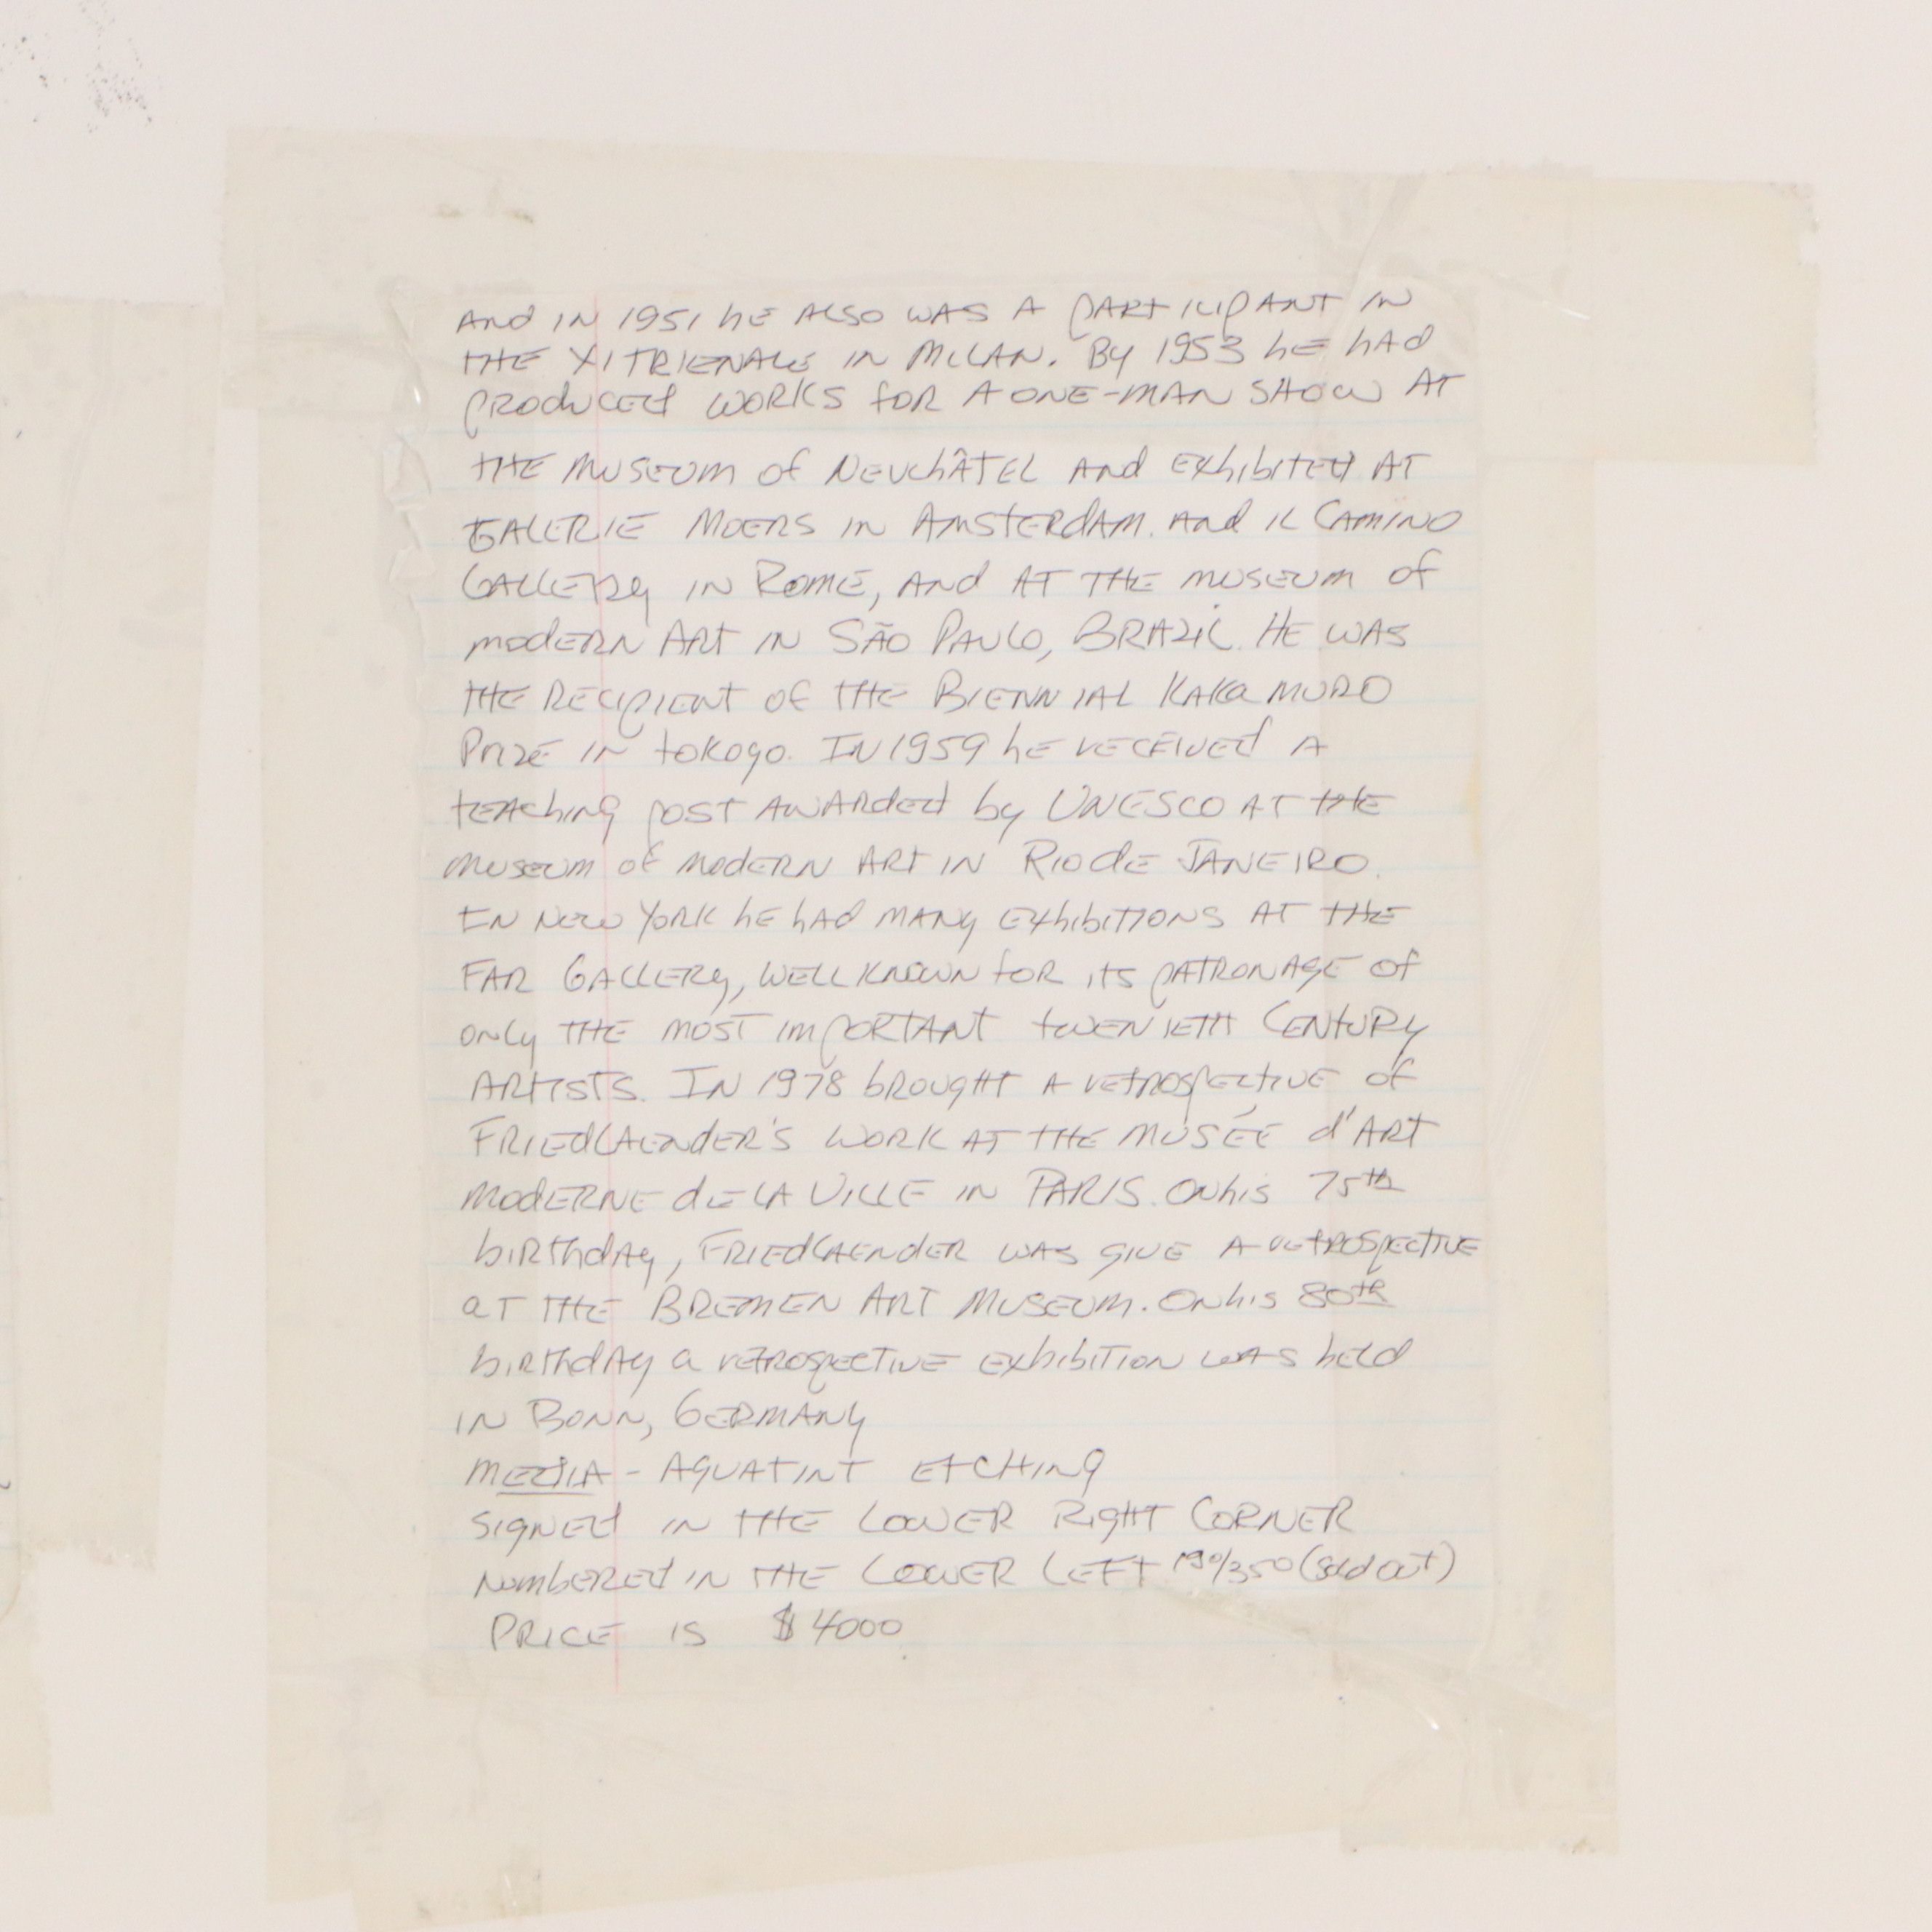 AND IN 1951 HE ALSO WAS A PARTICIPANT IN
THE XI TRIENALE IN MILAN. BY 1953 HE HAD
PRODUCED WORKS FOR A ONE-MAN SHOW AT
THE MUSEUM OF NEUCHÂTEL AND EXHIBITED AT
GALERIE MOERS IN AMSTERDAM. AND IL CAMINO
GALLERY IN ROME, AND AT THE MUSEUM OF
MODERN ART IN SÃO PAULO, BRAZIL. HE WAS
THE RECIPIENT OF THE BIENNIAL KAKAMURO
PRIZE IN TOKOYO. IN 1959 HE RECEIVED A
TEACHING POST AWARDED BY UNESCO AT THE
MUSEUM OF MODERN ART IN RIO DE JANEIRO.
IN NEW YORK HE HAD MANY EXHIBITIONS AT THE
FAR GALLERY, WELL KNOWN FOR ITS PATRONAGE OF
ONLY THE MOST IMPORTANT TWENTIETH CENTURY
ARTISTS. IN 1978 BROUGHT A RETROSPECTIVE OF
FRIEDLAENDER'S WORK AT THE MUSÉE d'ART
MODERNE DE LA VILLE IN PARIS. ON HIS 75th
BIRTHDAY, FRIEDLAENDER WAS GIVE A RETROSPECTIVE
AT THE BREMEN ART MUSEUM. ON HIS 80th
BIRTHDAY A RETROSPECTIVE EXHIBITION WAS HELD
IN BONN, GERMANY
MEDIA - AQUATINT ETCHING
SIGNED IN THE LOWER RIGHT CORNER
NUMBERED IN THE LOWER LEFT 190/350 (Sold out)
PRICE IS $4000